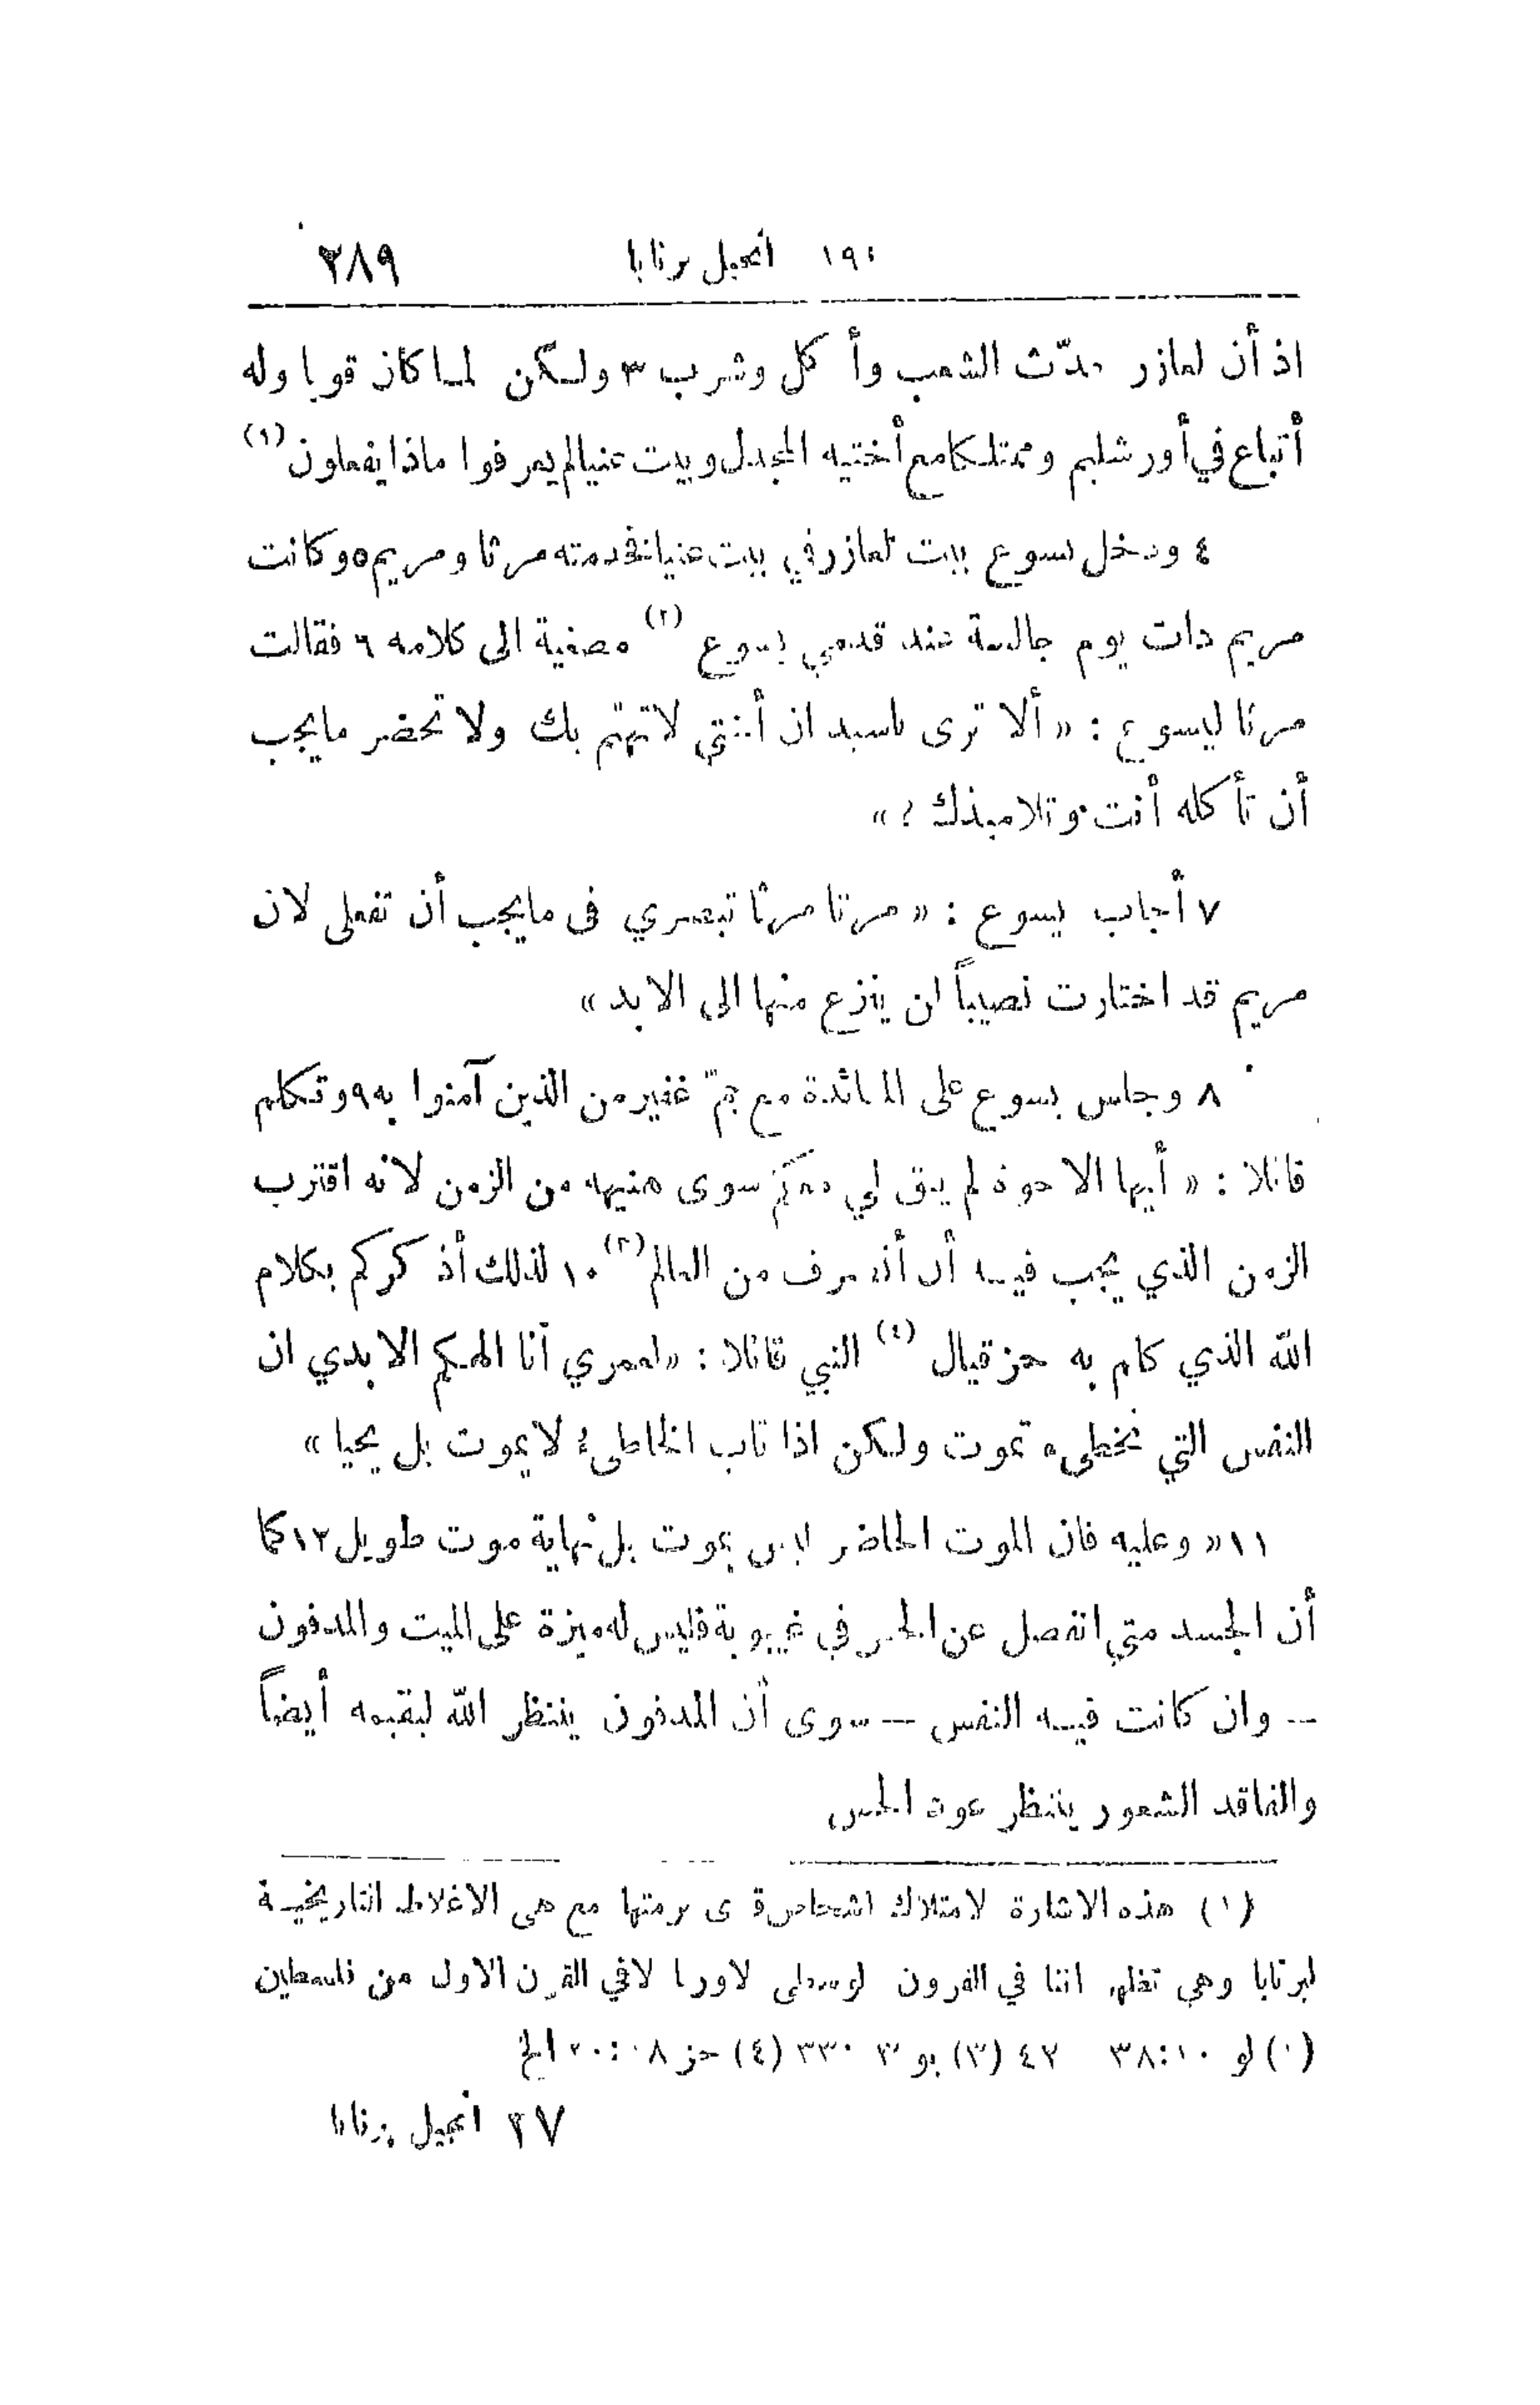 انجيل برنابا ٢٨٩
اذ أن لعازر حدّث الشعب وأكل وشرب ٣ ولكن لما كان قويا وله
أتباع في أورشليم وممتلكا مع أختيه المجدل وبيت عنيا لم يعرفوا ماذا يفعلون (١)
٤ ودخل يسوع بيت لعازر في بيت عنيا فخدمته مرثا ومريم ٥ وكانت
مريم ذات يوم جالسة عند قدمي يسوع (٢) مصغية الى كلامه ٦ فقالت
مرثا ليسوع : « ألا ترى ياسيد ان أختي لا تهتم بك ولا تحضر مايجب
أن تأكله أنت وتلاميذك ؟ »
٧ أجاب يسوع : « مرثا مرثا تبصري في مايجب أن تفعلي لان
مريم قد اختارت نصيباً لن ينزع منها الى الابد »
٨ وجلس يسوع على المائدة مع جمّ غفير من الذين آمنوا به ٩ وتكلم
قائلا : « أيها الاخوة لم يبق لي معكم سوى هنيهه من الزمن لانه اقترب
الزمن الذي يجب فيه أن أنصرف من العالم (٣) ١٠ لذلك أذكركم بكلام
الله الذي كلم به حزقيال (٤) النبي قائلا : « لعمري أنا الهكم الابدي ان
النفس التي تخطىء تموت ولكن اذا تاب الخاطىء لا يموت بل يحيا »
١١ « وعليه فان الموت الحاضر ليس بموت بل نهاية موت طويل ١٢ كما
أن الجسد متى انفصل عن الحس في غيبوبة فليس له ميزة على الميت والمدفون
— وان كانت فيه النفس — سوى أن المدفون ينتظر الله ليقيمه أيضاً
والفاقد الشعور ينتظر عود الحس
(١) هذه الاشارة لامتلاك اشخاص قرى برمتها مع هي الاغلاط التاريخية
لبرنابا وهي تظهر اننا في القرون الوسطى لاوربا لا في القرن الاول من فلسطين
لو ١٠:٣٨ ٤٢ (٣) يو (٤) حز الخ
٣٧ انجيل برنابا